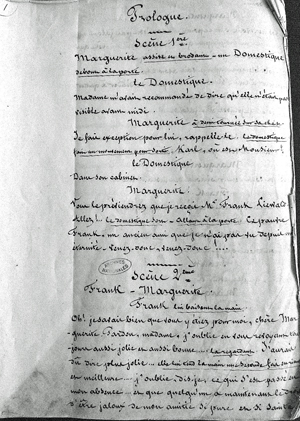 Prologue.
Scène 1ère
Marguerite assise et brodant - un Domestique
debout à la porte.
le Domestique.
Madame m'avait recommandé de dire qu'elle n'était pas
visible avant midi
Marguerite à demi tournée sur sa chaise
Je fais exception pour lui, rappelle-le le domestique
fait un mouvement pour sortir Karl, où est Monsieur?
le Domestique
Dans son cabinet.
Marguerite.
Vous le préviendrez que je reçois Mr. Frank
Allez! le domestique sort - allant à la porte. Ce pauvre
Frank, un ancien ami que je n'ai pas vu depuis un
éternité - venez donc, venez donc!....
Scène 2ème
Frank - Marguerite.
Frank lui baisant la main
Oh! je savais bien que vous y étiez pour moi, chère Mar-
guerite Pardon, madame, j'oublie en vous revoyant
jours aussi jolie et aussi bonne.... la regardant J'aurais
du dire plus jolie... elle lui tend la main une seconde fois
en meilleure... j'oublie, dis-je, ce qui s'est passé en
mon absence, et que quelqu'un a maintenant le droit
d'être jaloux de mon amitié si pure et si sainte